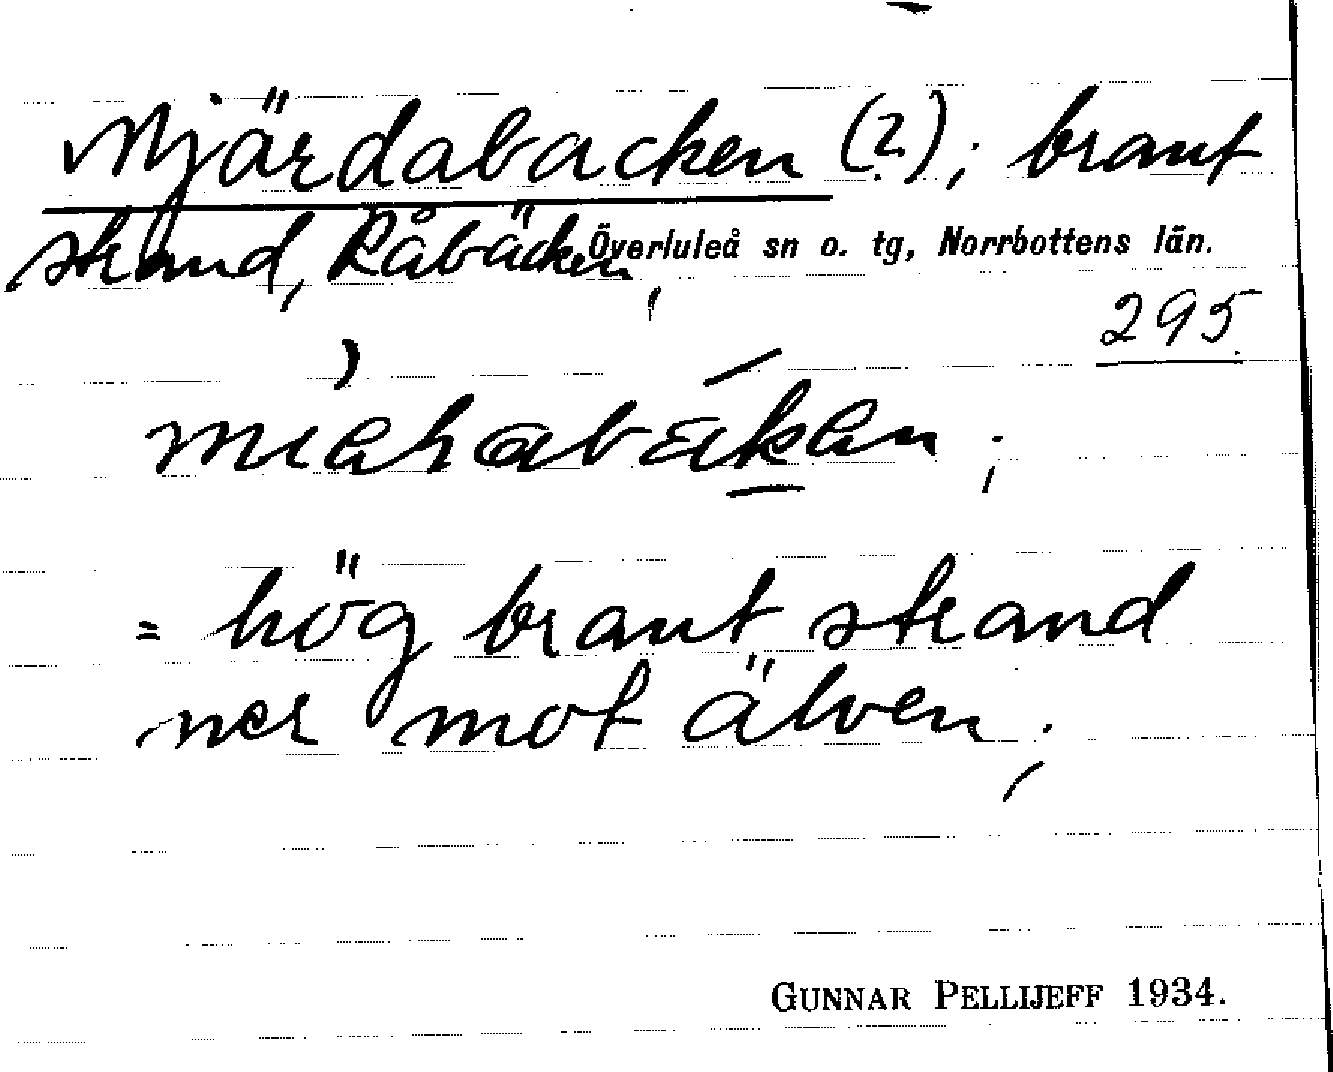 Mjärdabacken (?); brant
strand, Råbäcken, Överluleå sn o. tg, Norrbottens län.
295
= hög brant strand
ner mot älven;
GUNNAR PELLIJEFF 1934.